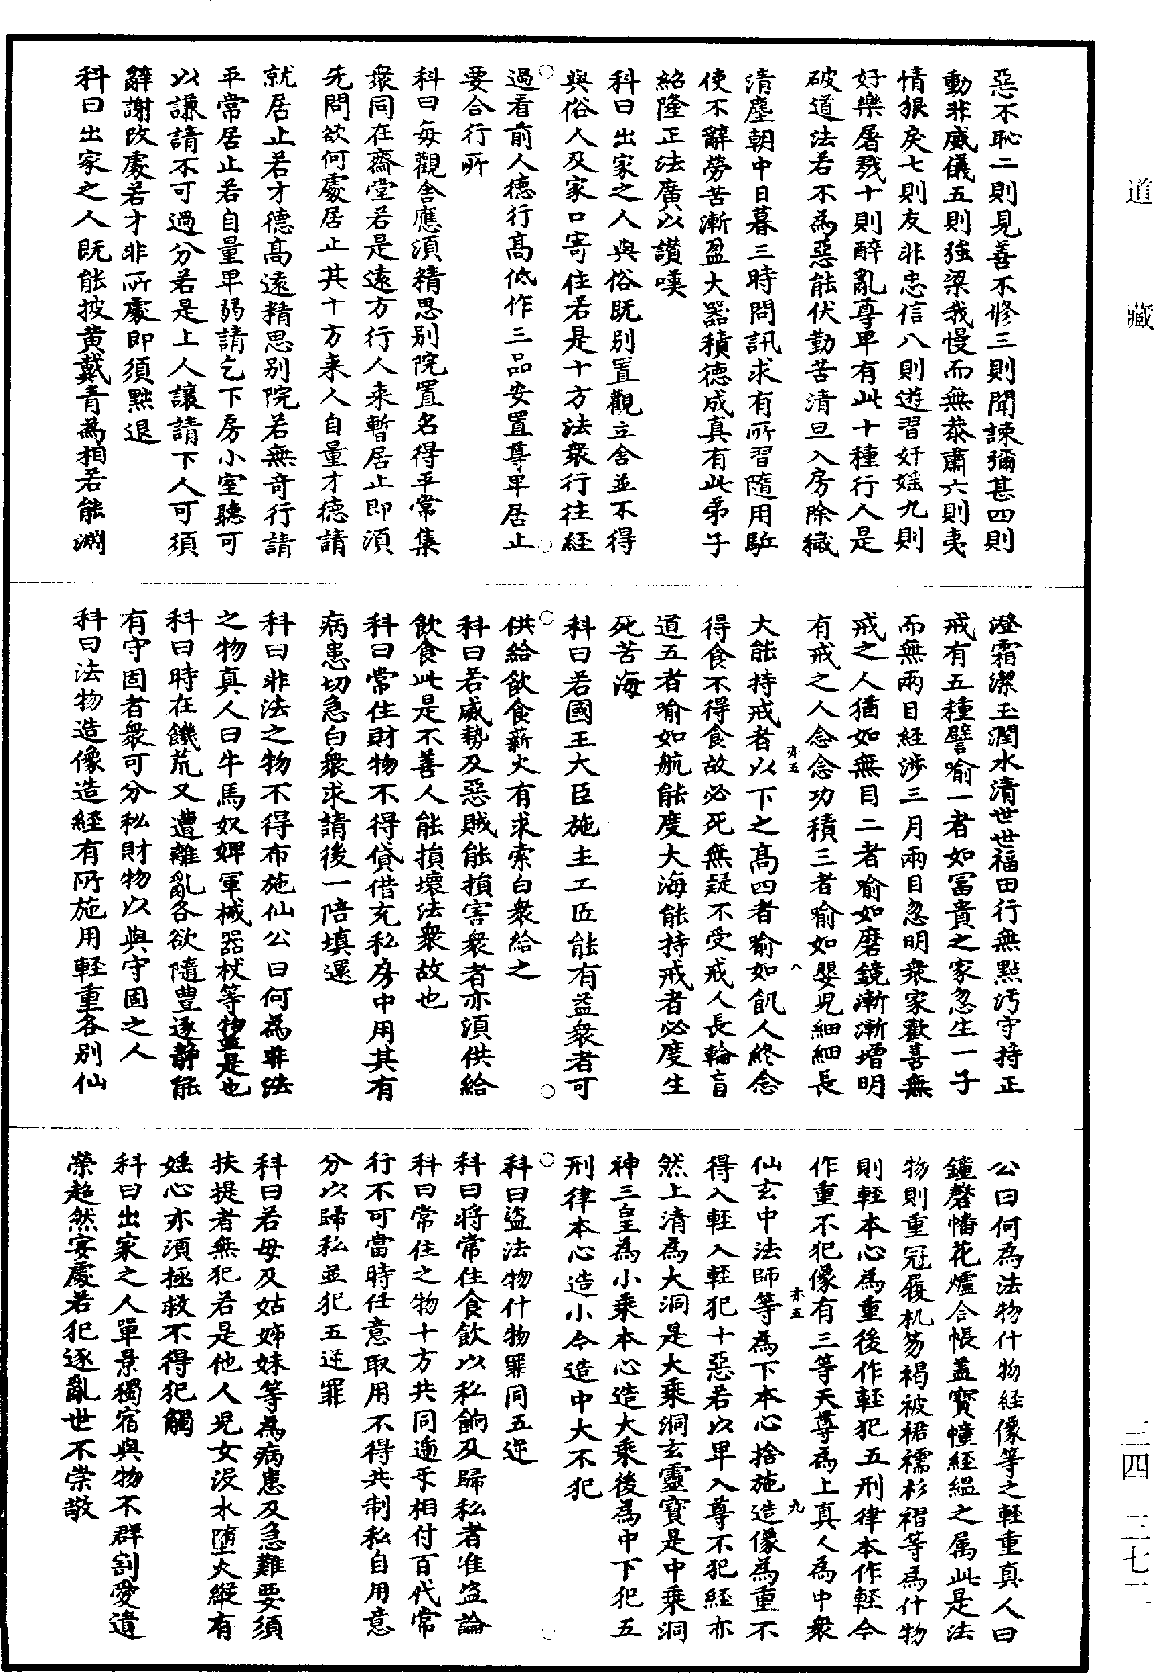 道藏
惡不恥二則見善不修三則聞諫彌甚四則
動非威儀五則強梁我慢而無恭肅六則夷
情狠戾七則友非忠信八則遊習奸婬九則
好樂屠戮十則醉亂尊卑有此十種行人是
破道法若不為惡能伏勤苦清旦入房除穢
清塵朝中日暮三時問訊求有所習隨用駈
使不辭勞苦漸盈大器積德成真有此弟子
紹隆正法廣以讚嘆
科曰出家之人與俗既別置觀立舍並不得
與俗人及家口寄住若是十方法衆行往經
過看前人德行高低作三品安置尊卑居止
要合行所
科曰每觀舍應須精思別院置名得平常集
衆同在齋堂若是遠方行人来暫居止即須
先問欲何處居止其十方来人自量才德請
就居止若才德高遠精思別院若無奇行請
平常居止若自量卑弱請乞下房小室聽可
以謙請不可過分若是上人讓請下人可須
辭謝改處若才非所處即須點退
科曰出家之人既能披黄戴青為相若能淵
澄霜潔玉潤水清世世福田行無點污守持正
戒有五種譬喻一者如冨貴之家忽生一子
而無兩目經涉三月兩目忽明衆家歡喜無
戒之人猶如無目二者喻如磨鏡漸漸增明
有戒之人念念功積三者喻如嬰兒細細長
亦五
八
大能持戒者以下之高四者喻如飢人終念
得食不得食故必死無疑不受戒人長輪盲
道五者喻如航能度大海能持戒者必度生
死苦海
科曰若國王大臣施主工匠能有益衆者可
供給飲食薪火有求索白衆給之
科曰若威勢及惡賊能損害衆者亦須供給
飲食此是不善人能損壞法衆故也
科曰常住財物不得貸借充私房中用其有
病患切急白衆求請後一陪填還
科曰非法之物不得布施仙公曰何為非法
之物真人曰牛馬奴婢軍械器杖等物盡是也
科曰時在饑荒又遭離亂各欲隨豊逐靜能
有守固者衆可分私財物以與守固之人
科曰法物造像造經有所施用輕重各別仙
公曰何為法物什物經像等之輕重真人曰
鐘磬幡花爐合帳蓋寳幢經緼之属此是法
物則重冠履机笏褐被裙襦衫褶等為什物
則輕本心為重後作輕犯五刑律本作輕今
作重不犯像有三等天尊為上真人為中衆
亦五
九
仙玄中法師等為下本心捨施造像為重不
得入輕入輕犯十惡若以卑入尊不犯經亦
然上清為大洞是大乘洞玄靈寳是中乘洞
神三皇為小乘本心造大乘後為中下犯五
刑律本心造小今造中大不犯
科曰盜法物什物罪同五逆
科曰將常住食飲以私餉及歸私者准盜論
科曰常住之物十方共同逓互相付百代常
行不可當時任意取用不得共制私自用意
分以歸私並犯五逆罪
科曰若母及姑姉妹等為病患及急難要須
扶提者無犯若是他人兒女没水墮火縱有
婬心亦須拯救不得犯觸
科曰出家之人單景獨宿與物不群割愛遣
榮超然宴處若犯逐亂世不崇敬
三四 三七一